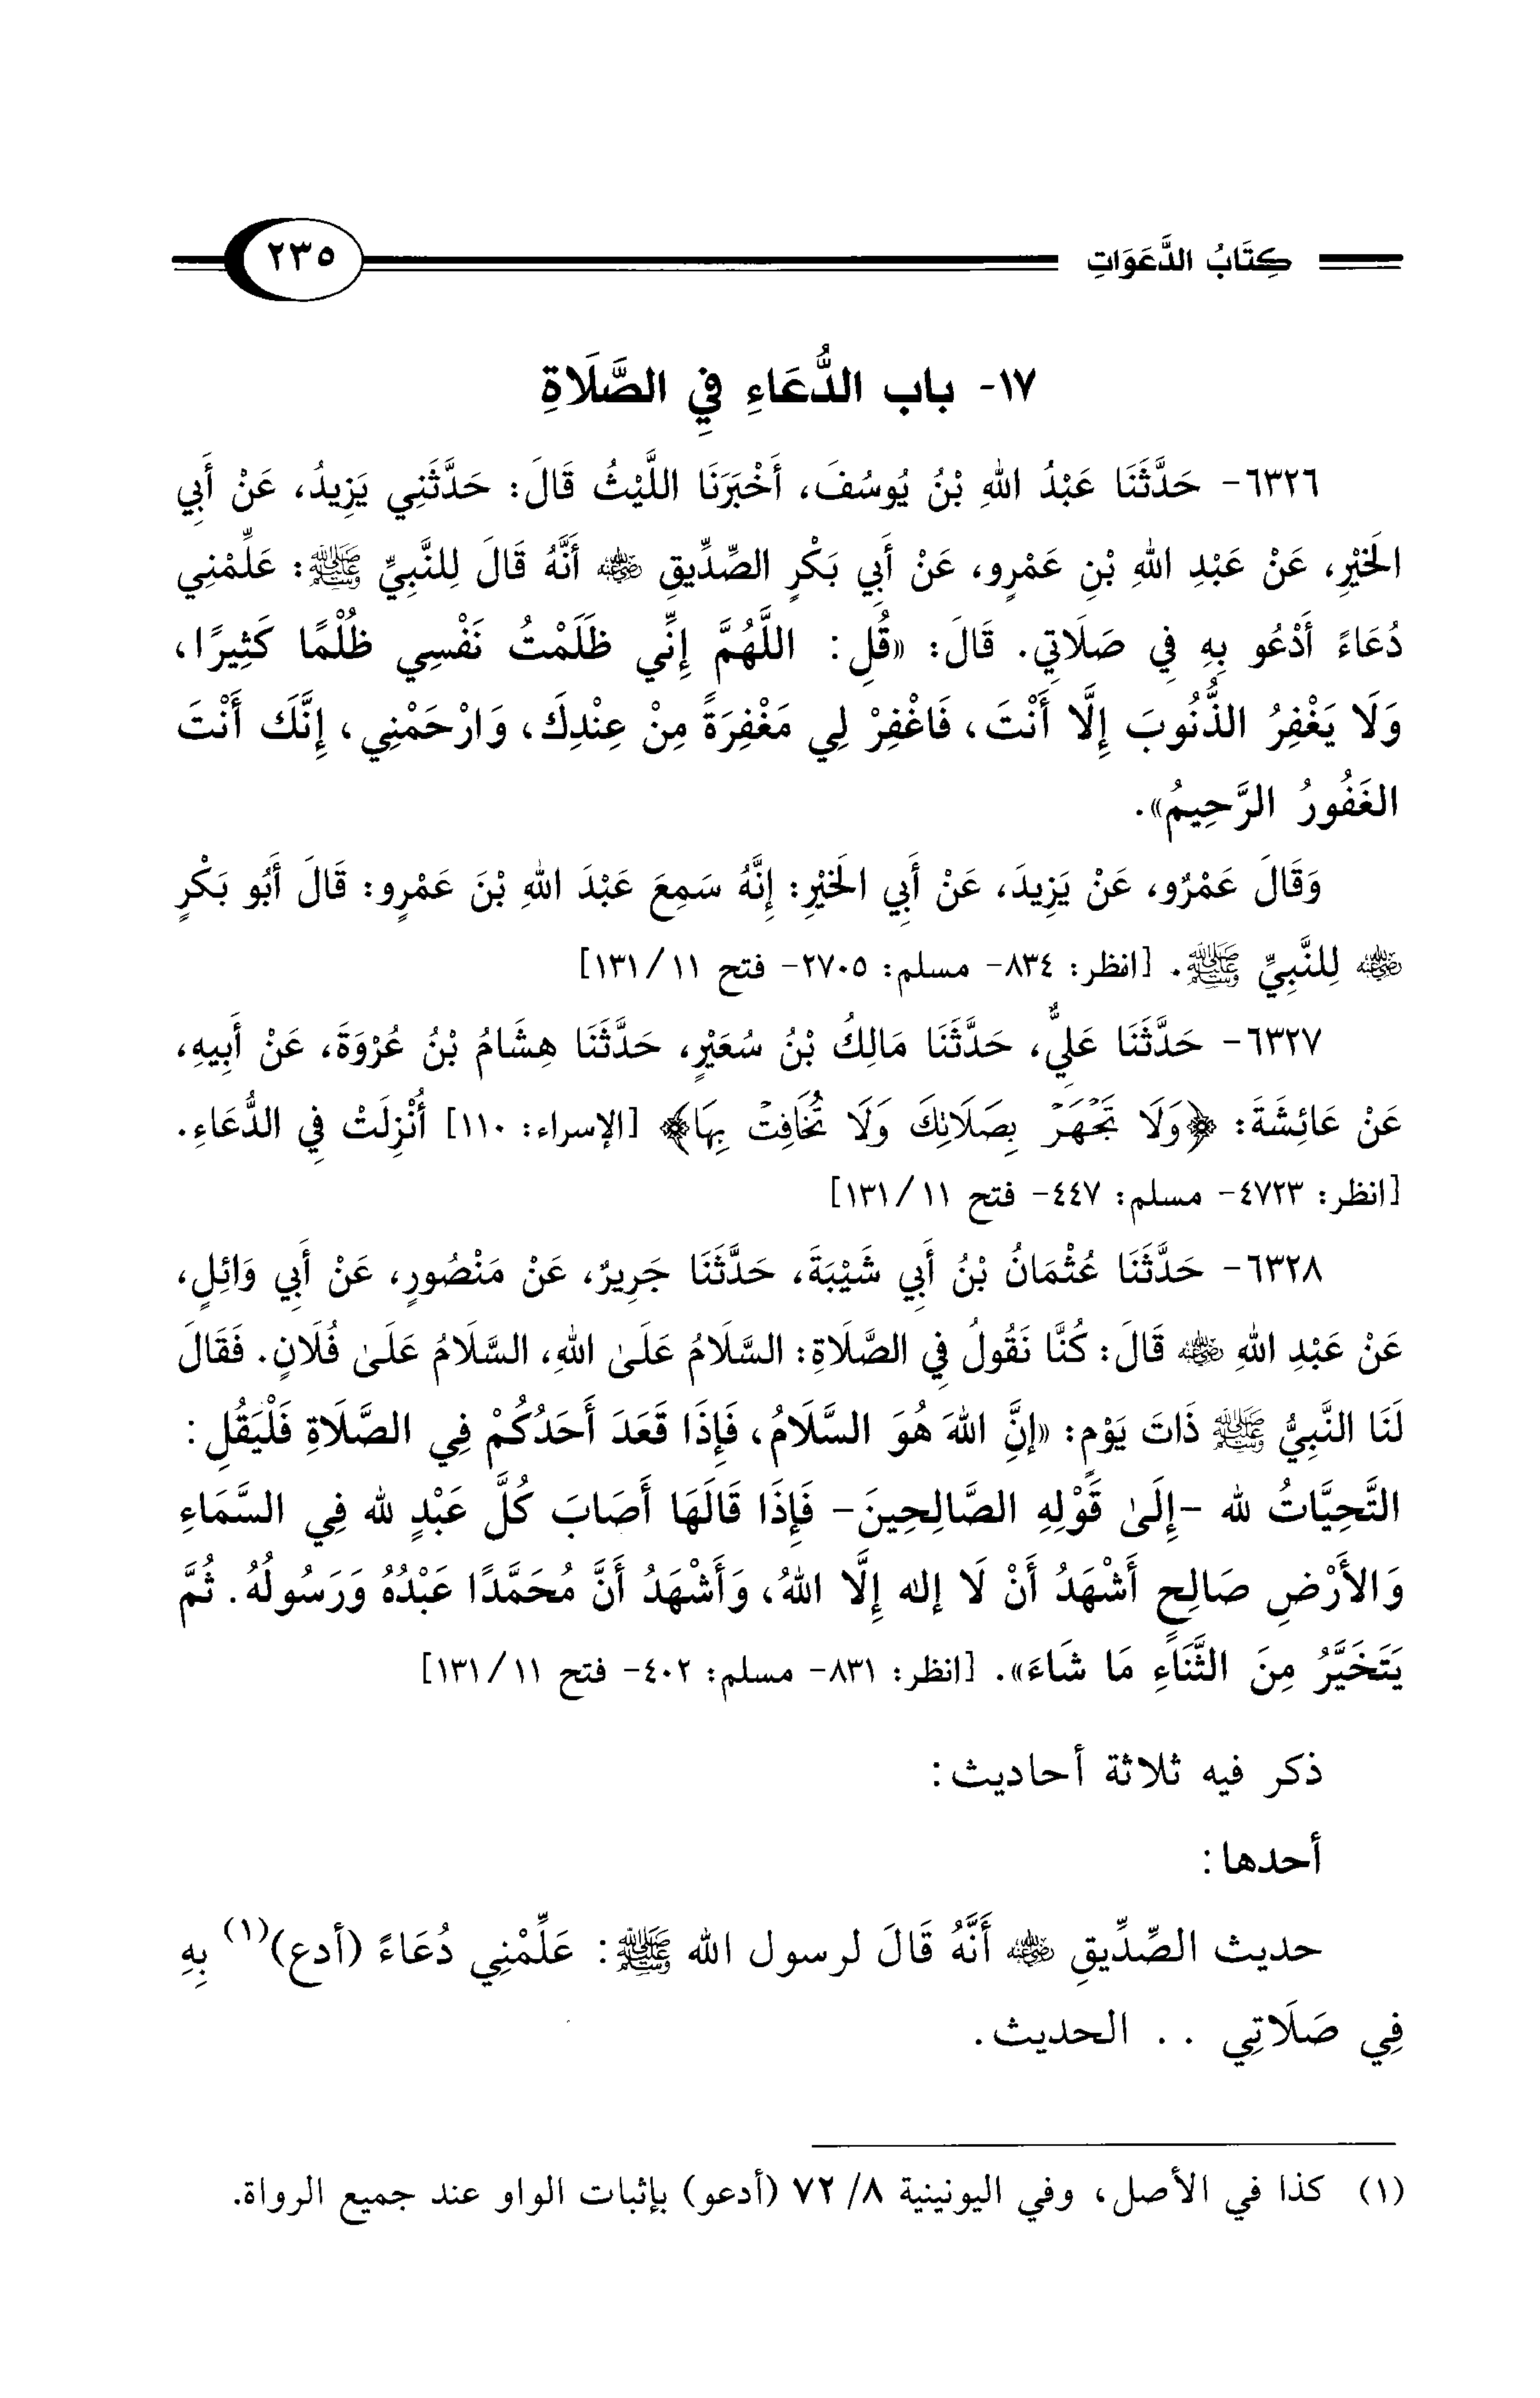 كِتَابُ الدَّعَوَاتِ ٢٣٥
١٧- باب الدُّعَاءِ فِي الصَّلَاةِ
٦٣٢٦- حَدَّثَنَا عَبْدُ اللهِ بْنُ يُوسُفَ، أَخْبَرَنَا اللَّيْثُ قَالَ: حَدَّثَنِي يَزِيدُ، عَنْ أَبِي
الخَيْرِ، عَنْ عَبْدِ اللهِ بْنِ عَمْرٍو، عَنْ أَبِي بَكْرٍ الصِّدِّيقِ رضي الله عنه أَنَّهُ قَالَ لِلنَّبِيِّ ﷺ: عَلِّمْنِي
دُعَاءً أَدْعُو بِهِ فِي صَلَاتِي. قَالَ: «قُلِ: اللَّهُمَّ إِنِّي ظَلَمْتُ نَفْسِي ظُلْمًا كَثِيرًا،
وَلَا يَغْفِرُ الذُّنُوبَ إِلَّا أَنْتَ، فَاغْفِرْ لِي مَغْفِرَةً مِنْ عِنْدِكَ، وَارْحَمْنِي، إِنَّكَ أَنْتَ
الغَفُورُ الرَّحِيمُ».
وَقَالَ عَمْرٌو، عَنْ يَزِيدَ، عَنْ أَبِي الخَيْرِ: إِنَّهُ سَمِعَ عَبْدَ اللهِ بْنَ عَمْرٍو: قَالَ أَبُو بَكْرٍ
رضي الله عنه لِلنَّبِيِّ ﷺ. [انظر: ٨٣٤- مسلم: ٢٧٠٥- فتح ١١/ ١٣١]
٦٣٢٧- حَدَّثَنَا عَلِيٌّ، حَدَّثَنَا مَالِكُ بْنُ سُعَيْرٍ، حَدَّثَنَا هِشَامُ بْنُ عُرْوَةَ، عَنْ أَبِيهِ،
عَنْ عَائِشَةَ: ﴿وَلَا تَجْهَرْ بِصَلَاتِكَ وَلَا تُخَافِتْ بِهَا﴾ [الإسراء: ١١٠] أُنْزِلَتْ فِي الدُّعَاءِ.
[انظر: ٤٧٢٣- مسلم: ٤٤٧- فتح ١١/ ١٣١]
٦٣٢٨- حَدَّثَنَا عُثْمَانُ بْنُ أَبِي شَيْبَةَ، حَدَّثَنَا جَرِيرٌ، عَنْ مَنْصُورٍ، عَنْ أَبِي وَائِلٍ،
عَنْ عَبْدِ اللهِ رضي الله عنه قَالَ: كُنَّا نَقُولُ فِي الصَّلَاةِ: السَّلَامُ عَلَىٰ اللهِ، السَّلَامُ عَلَىٰ فُلَانٍ. فَقَالَ
لَنَا النَّبِيُّ ﷺ ذَاتَ يَوْمٍ: «إِنَّ اللهَ هُوَ السَّلَامُ، فَإِذَا قَعَدَ أَحَدُكُمْ فِي الصَّلَاةِ فَلْيَقُلِ:
التَّحِيَّاتُ لله -إِلَىٰ قَوْلِهِ الصَّالِحِينَ- فَإِذَا قَالَهَا أَصَابَ كُلَّ عَبْدٍ لله فِي السَّمَاءِ
وَالأَرْضِ صَالِحٍ أَشْهَدُ أَنْ لَا إلٰه إِلَّا اللهُ، وَأَشْهَدُ أَنَّ مُحَمَّدًا عَبْدُهُ وَرَسُولُهُ. ثُمَّ
يَتَخَيَّرُ مِنَ الثَّنَاءِ مَا شَاءَ». [انظر: ٨٣١- مسلم: ٤٠٢- فتح ١١/ ١٣١]
ذكر فيه ثلاثة أحاديث:
أحدها:
حديث الصِّدِّيقِ رضي الله عنه أَنَّهُ قَالَ لرسول الله ﷺ: عَلِّمْنِي دُعَاءً (أدع)(١) بِهِ
فِي صَلَاتِي . . الحديث.
(١) كذا في الأصل، وفي اليونينية ٨/ ٧٢ (أدعو) بإثبات الواو عند جميع الرواة.